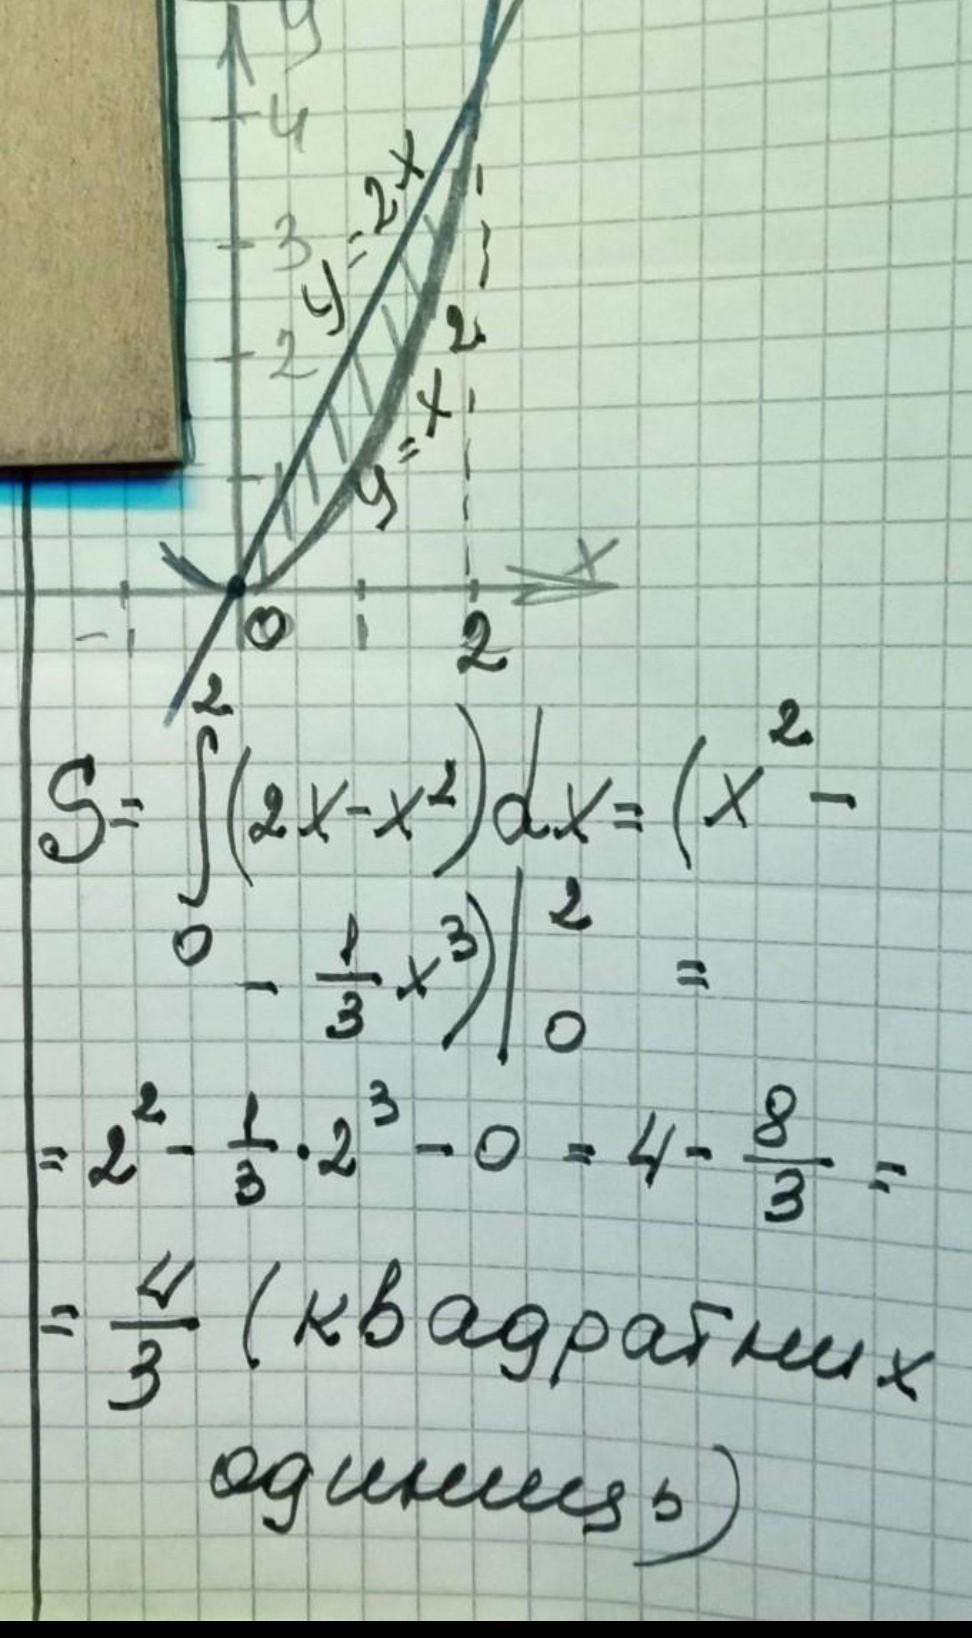 y
4
y = 2x
3
2
y = x²
x
-1
0
1
2
S = ∫₀² (2x - x²) dx = (x² -
- 1/3 x³) |₀² =
= 2² - 1/3 · 2³ - 0 = 4 - 8/3 =
= 4/3 (квадратних
одиниць)